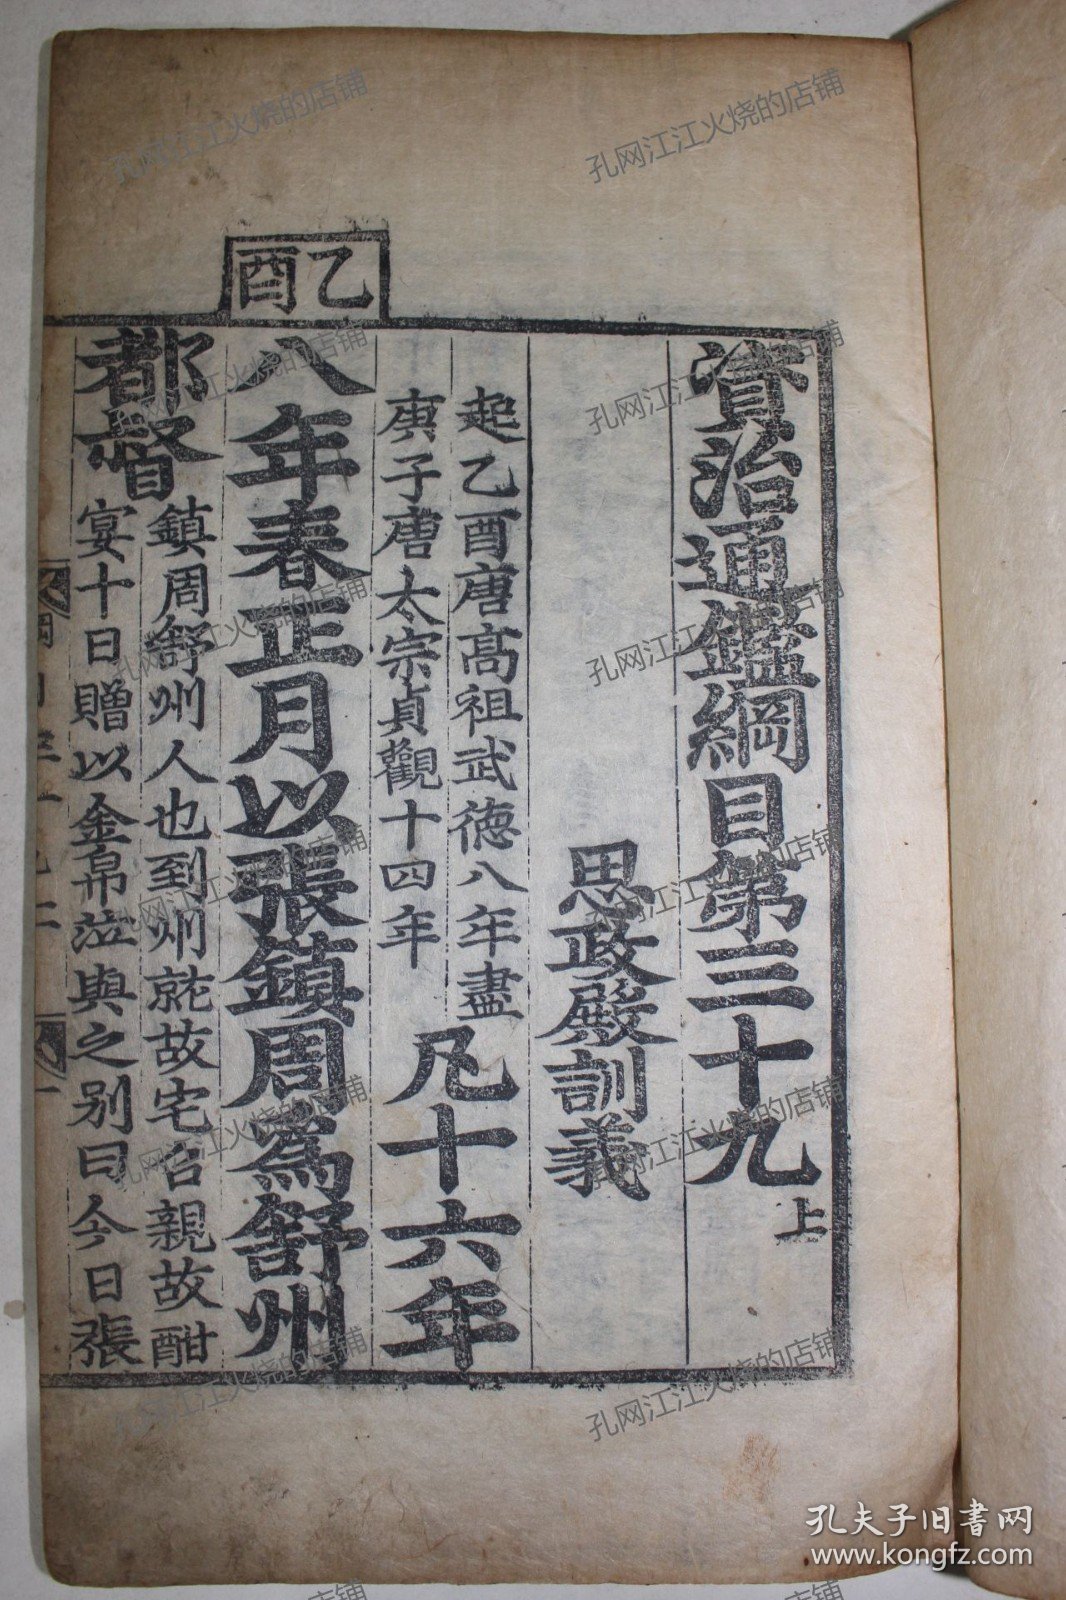 資治通鑑綱目第三十九上
思政殿訓義
起乙酉唐高祖武徳八年盡
庚子唐太宗貞觀十四年
凡十六年
乙酉
八年春正月以張鎮周爲舒州
都督
鎮周舒州人也到州就故宅召親故酣
宴十日贈以金帛泣與之别曰今日張
孔网江江火烧的店铺
孔夫子旧書网
www.kongfz.com